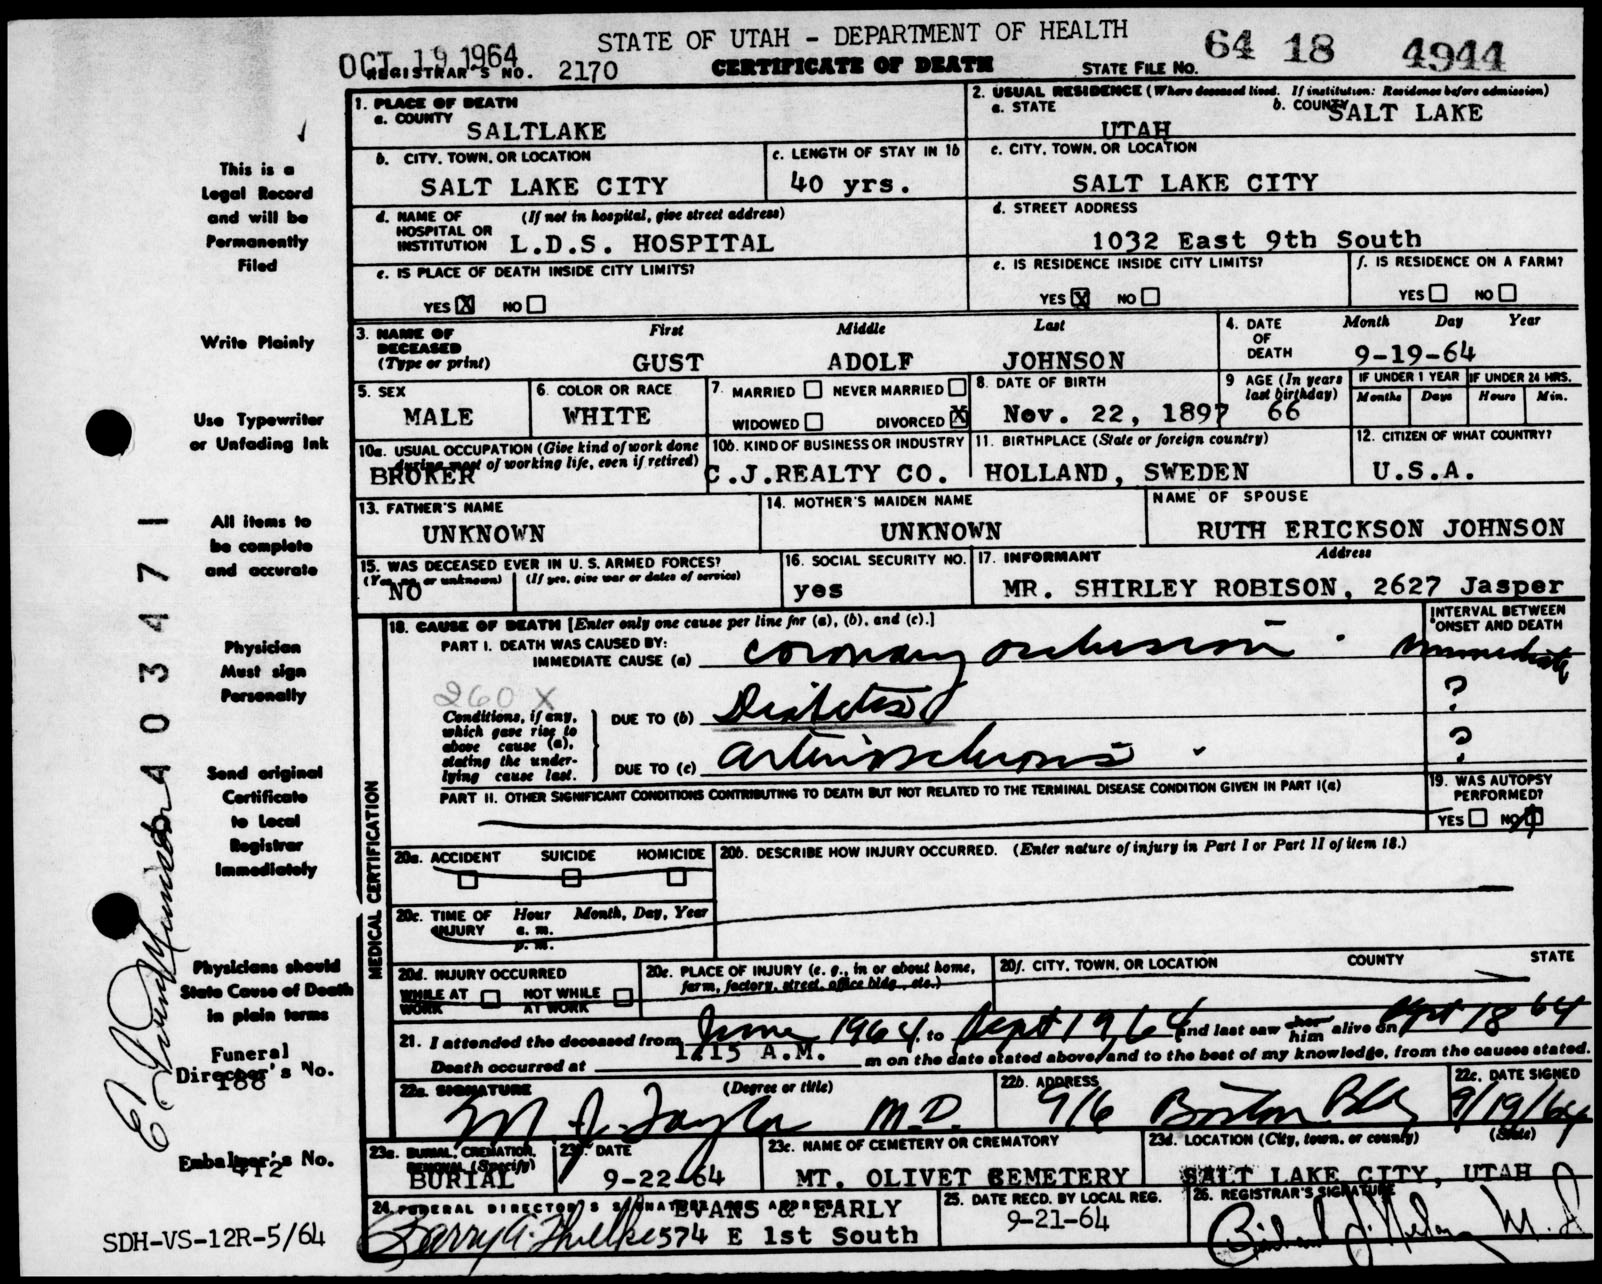 STATE OF UTAH - DEPARTMENT OF HEALTH
OCT 19 1964
REGISTRAR'S NO. 2170
CERTIFICATE OF DEATH
STATE FILE NO. 64 18 4944
This is a
Legal Record
and will be
Permanently
Filed
Write Plainly
Use Typewriter
or Unfading Ink
All items to
be complete
and accurate
Physician
Must sign
Personally
Send original
Certificate
to Local
Registrar
Immediately
Physicians should
State Cause of Death
in plain terms
Funeral
Director's No.
188
Embalmer's No.
412
SDH-VS-12R-5/64
4 0 3 4 7 1
1. PLACE OF DEATH
a. COUNTY
SALTLAKE
2. USUAL RESIDENCE (Where deceased lived. If institution: Residence before admission)
a. STATE
UTAH
b. COUNTY
SALT LAKE
b. CITY, TOWN, OR LOCATION
SALT LAKE CITY
c. LENGTH OF STAY IN 1b
40 yrs.
c. CITY, TOWN, OR LOCATION
SALT LAKE CITY
d. NAME OF HOSPITAL OR INSTITUTION (If not in hospital, give street address)
L.D.S. HOSPITAL
d. STREET ADDRESS
1032 East 9th South
e. IS PLACE OF DEATH INSIDE CITY LIMITS?
YES X NO
e. IS RESIDENCE INSIDE CITY LIMITS?
YES X NO
f. IS RESIDENCE ON A FARM?
YES NO
3. NAME OF DECEASED (Type or print)
First Middle Last
GUST ADOLF JOHNSON
4. DATE OF DEATH
Month Day Year
9-19-64
5. SEX
MALE
6. COLOR OR RACE
WHITE
7. MARRIED NEVER MARRIED
WIDOWED DIVORCED X
8. DATE OF BIRTH
Nov. 22, 1897
9 AGE (In years last birthday)
66
IF UNDER 1 YEAR
Months Days
IF UNDER 24 HRS.
Hours Min.
10a. USUAL OCCUPATION (Give kind of work done during most of working life, even if retired)
BROKER
10b. KIND OF BUSINESS OR INDUSTRY
C.J.REALTY CO.
11. BIRTHPLACE (State or foreign country)
HOLLAND, SWEDEN
12. CITIZEN OF WHAT COUNTRY?
U.S.A.
13. FATHER'S NAME
UNKNOWN
14. MOTHER'S MAIDEN NAME
UNKNOWN
NAME OF SPOUSE
RUTH ERICKSON JOHNSON
15. WAS DECEASED EVER IN U. S. ARMED FORCES?
(Yes, no, or unknown) (If yes, give war or dates of service)
NO
16. SOCIAL SECURITY NO.
yes
17. INFORMANT Address
MR. SHIRLEY ROBISON, 2627 Jasper
MEDICAL CERTIFICATION
18. CAUSE OF DEATH [Enter only one cause per line for (a), (b), and (c).]
INTERVAL BETWEEN ONSET AND DEATH
PART I. DEATH WAS CAUSED BY:
IMMEDIATE CAUSE (a) coronary occlusion Immediate
260 X
Conditions, if any, which gave rise to above cause (a), stating the underlying cause last.
DUE TO (b) Diabetes ?
DUE TO (c) Arteriosclerosis ?
PART II. OTHER SIGNIFICANT CONDITIONS CONTRIBUTING TO DEATH BUT NOT RELATED TO THE TERMINAL DISEASE CONDITION GIVEN IN PART I(a)
19. WAS AUTOPSY PERFORMED?
YES NO
20a. ACCIDENT SUICIDE HOMICIDE
20b. DESCRIBE HOW INJURY OCCURRED. (Enter nature of injury in Part I or Part II of item 18.)
20c. TIME OF INJURY Hour Month, Day, Year
a. m.
p. m.
20d. INJURY OCCURRED
WHILE AT WORK NOT WHILE AT WORK
20e. PLACE OF INJURY (e. g., in or about home, farm, factory, street, office bldg., etc.)
20f. CITY, TOWN, OR LOCATION COUNTY STATE
21. I attended the deceased from June 1964, to Sept 19, 64 and last saw her him alive on Sept 18 64
Death occurred at 1:15 A.M. m on the date stated above, and to the best of my knowledge, from the causes stated.
22a. SIGNATURE (Degree or title)
M J. Taylor M.D.
22b. ADDRESS
916 Boston Bldg
22c. DATE SIGNED
9/19/64
23a. BURIAL, CREMATION, REMOVAL (Specify)
BURIAL
23b. DATE
9-22-64
23c. NAME OF CEMETERY OR CREMATORY
MT. OLIVET CEMETERY
23d. LOCATION (City, town, or county) (State)
SALT LAKE CITY, UTAH
24. FUNERAL DIRECTOR'S SIGNATURE
EVANS & EARLY
574 E 1st South
25. DATE RECD. BY LOCAL REG.
9-21-64
26. REGISTRAR'S SIGNATURE